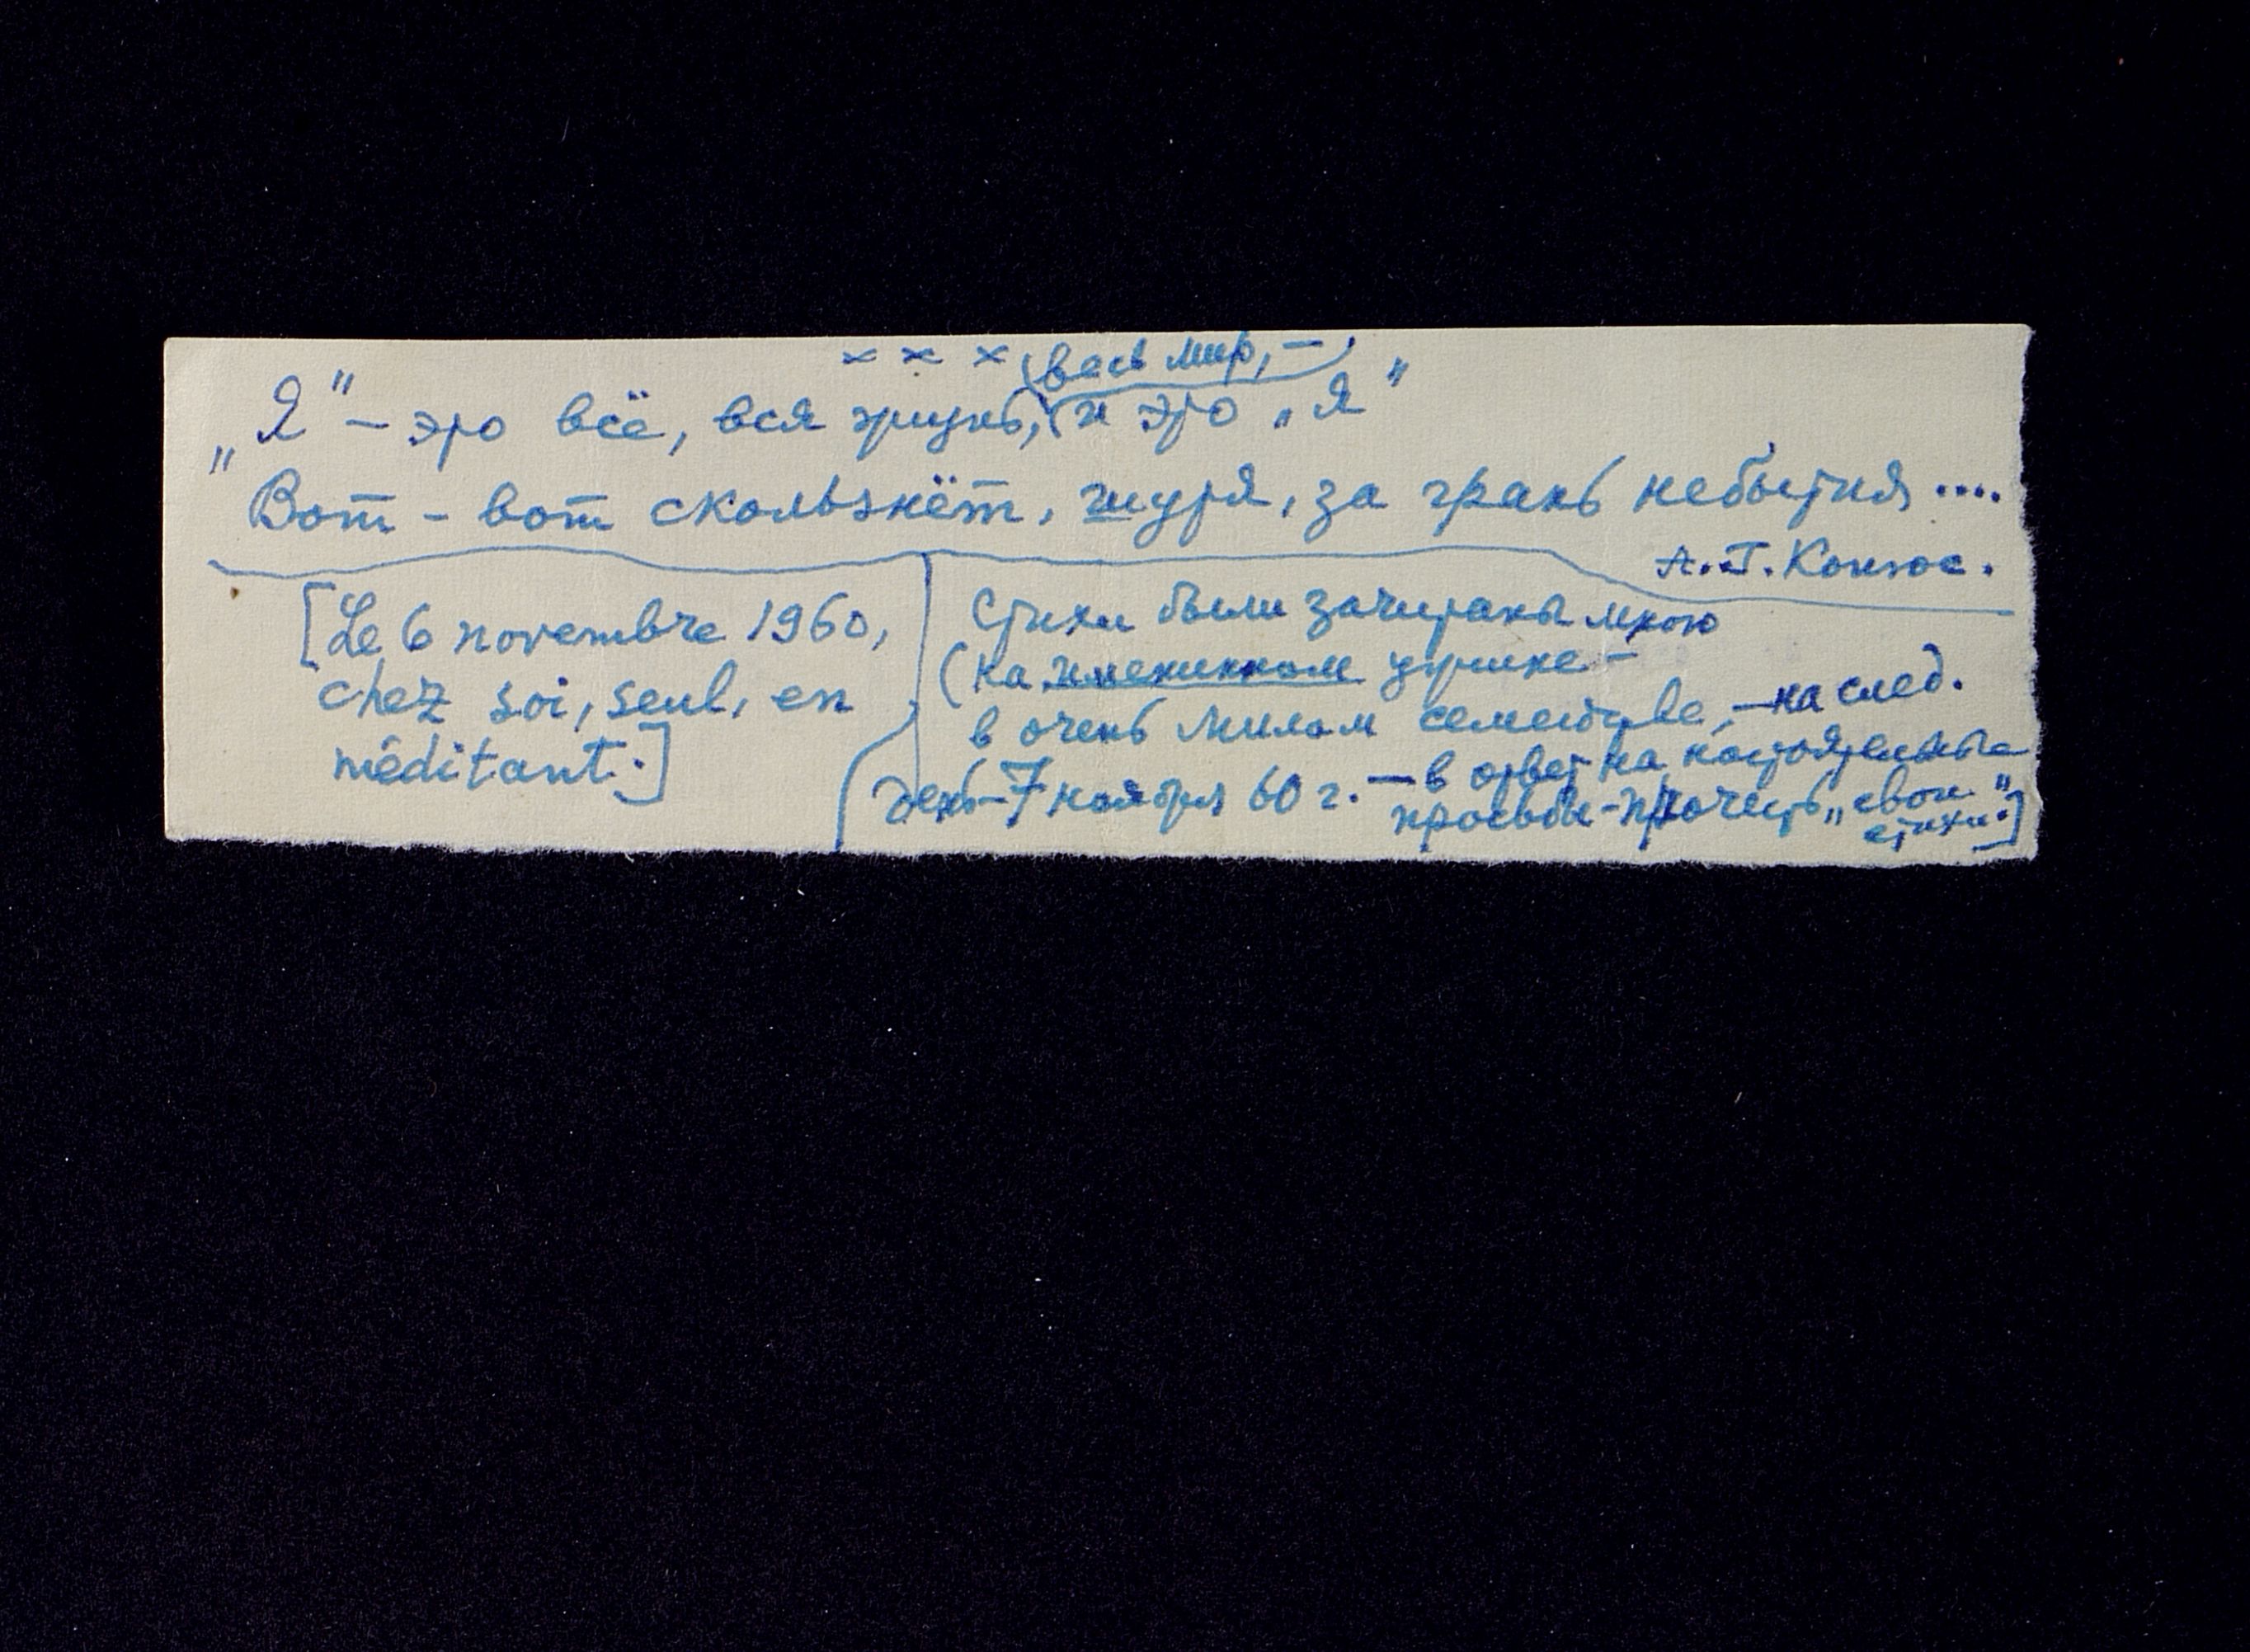 × × × (весь мир, –)
„Я" – это всё, вся жизнь, (и это „Я"
Вот – вот скользнёт, шутя, за грань небытия ....
А. Г. Конюс.
[Le 6 novembre 1960,
chez soi, seul, en
méditant.]
Стихи были зачитаны мною
(на именинном ужине –
в очень милом семействе, – на след.
день – 7 ноября 60 г. – в ответ на настоятельные
просьбы – прочесть „свои
стихи."]